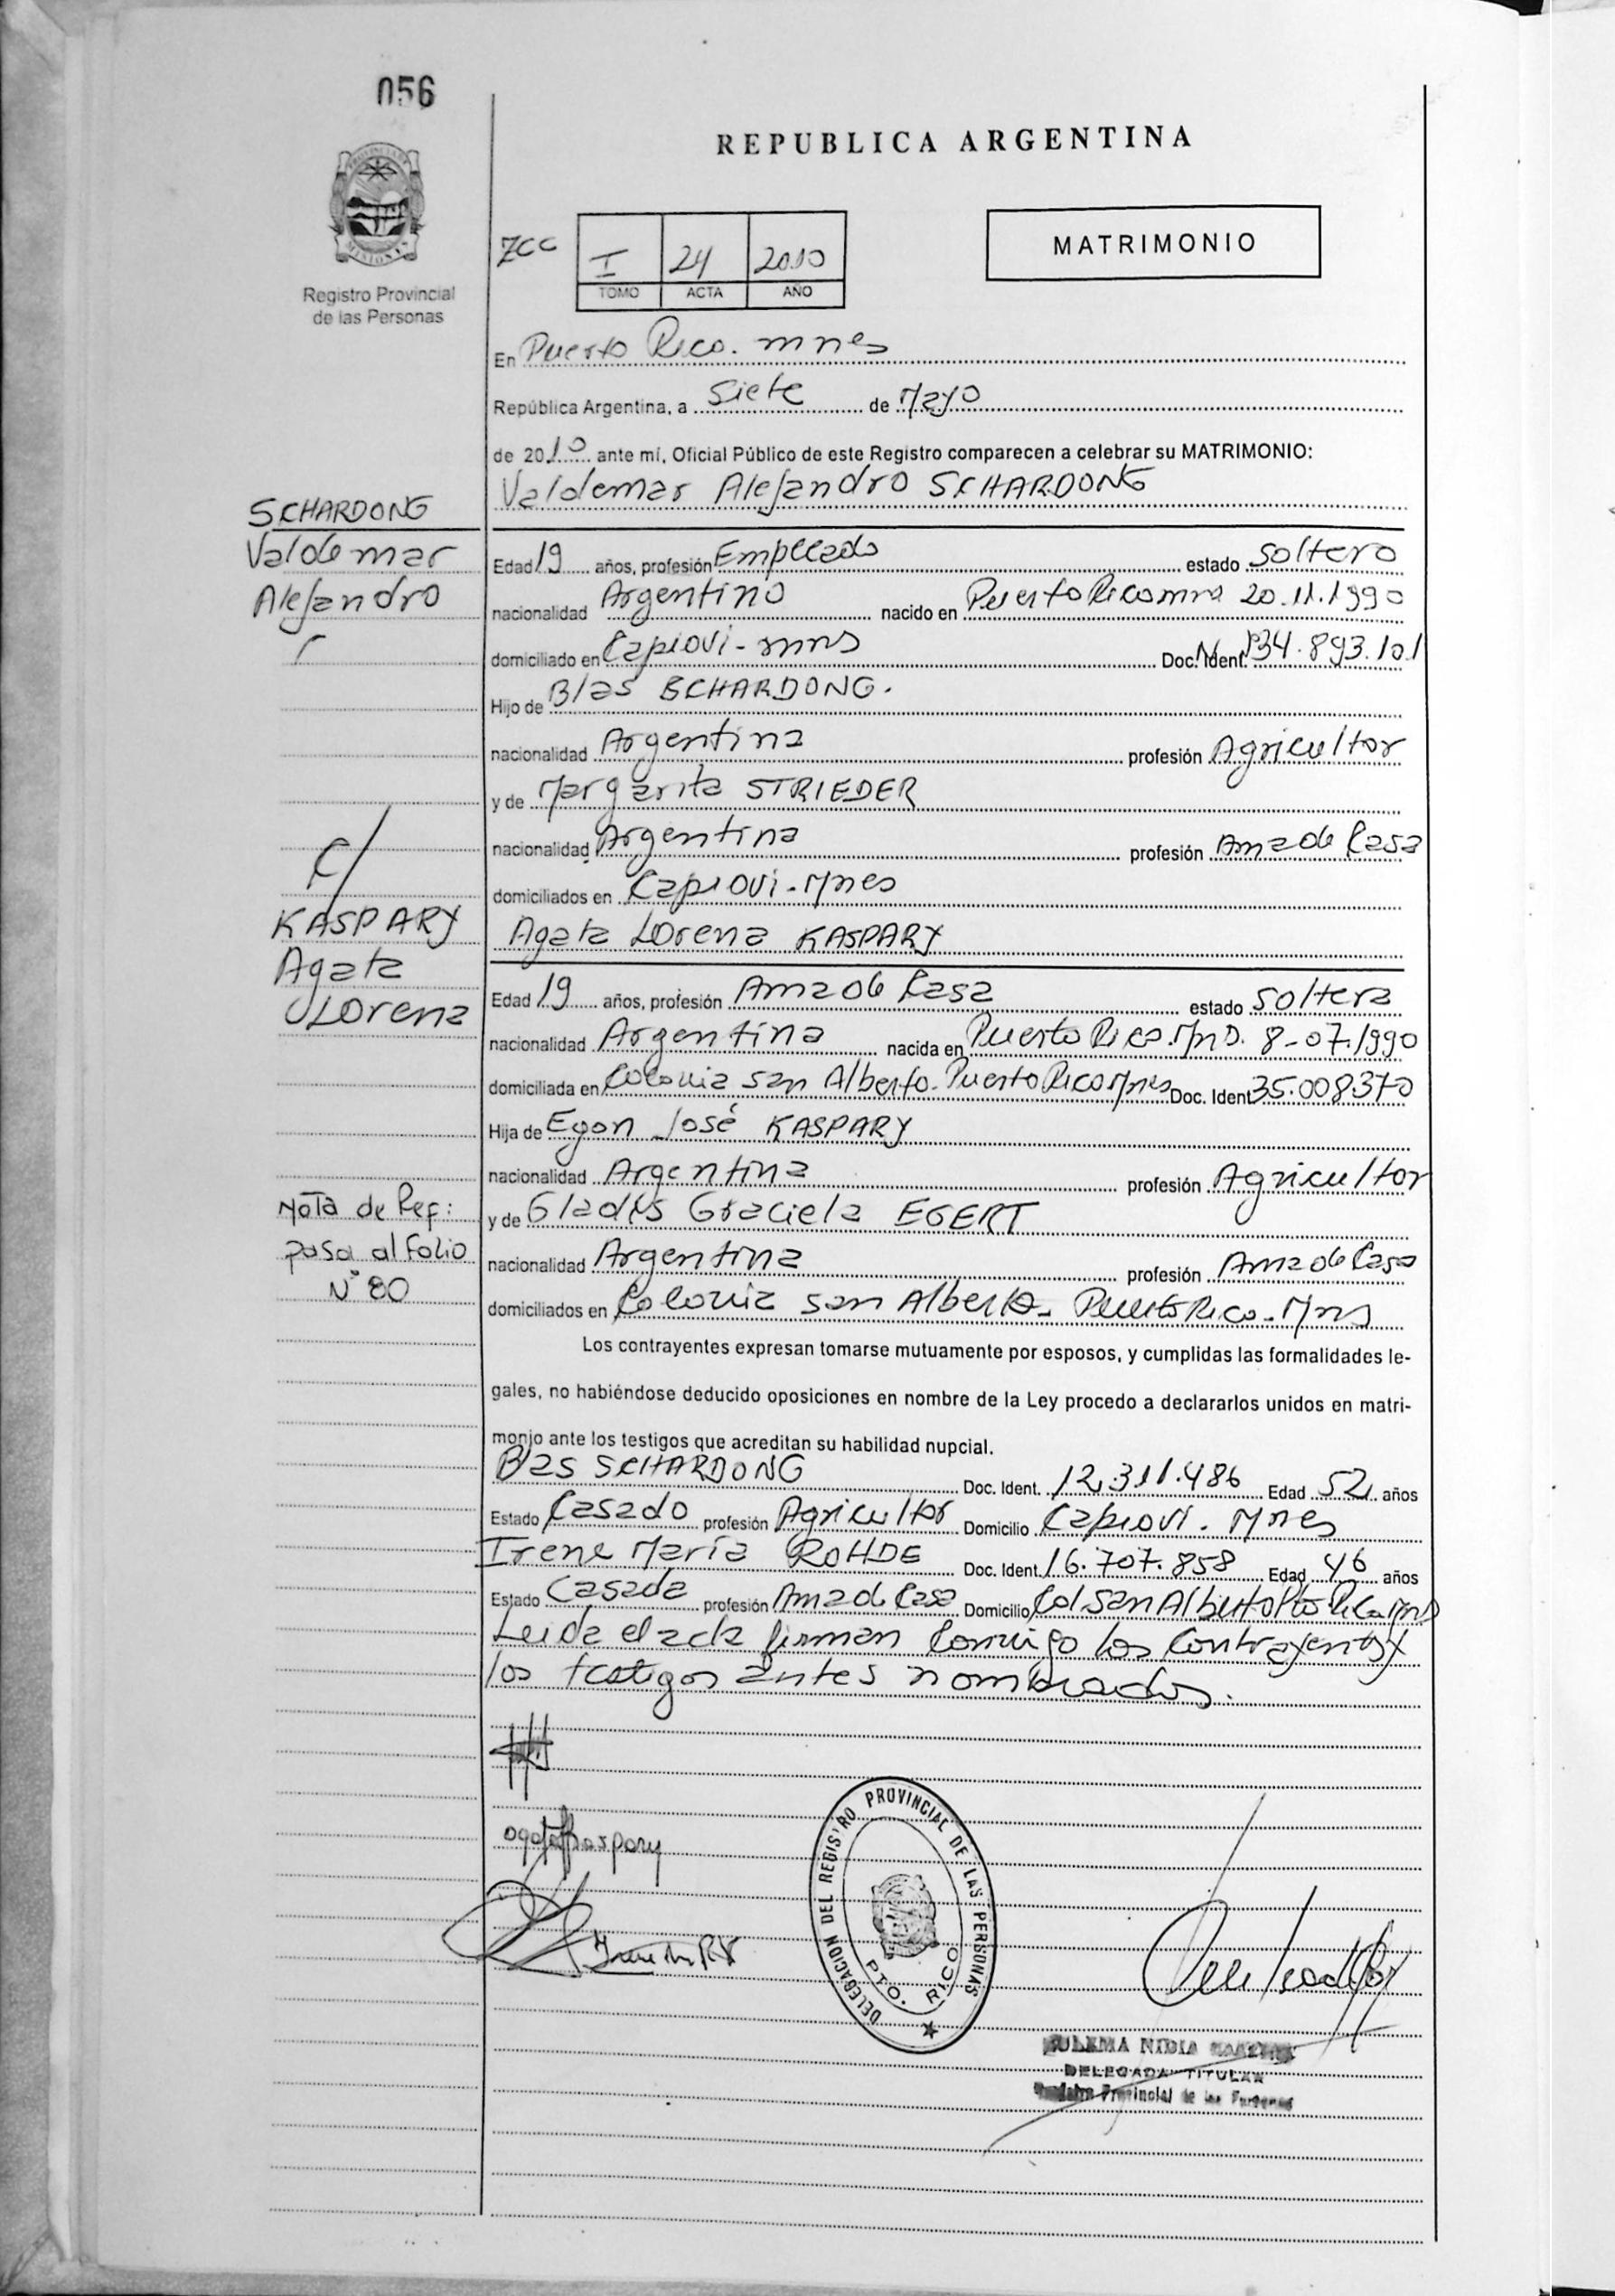 056
REPUBLICA ARGENTINA
PROVINCIA DE MISIONES
Registro Provincial
de las Personas
ZCC
I 24 2010
TOMO ACTA AÑO
MATRIMONIO
En Puerto Rico. mnes
República Argentina, a Siete de Mayo
de 2010 ante mí, Oficial Público de este Registro comparecen a celebrar su MATRIMONIO:
Valdemar Alejandro SCHARDONG
SCHARDONG
Valdemar
Alejandro
Edad 19 años, profesión Empleado estado soltero
nacionalidad Argentino nacido en Puerto Rico mns 20.11.1990
domiciliado en Capiovi - mns Doc. Ident. Nº 34.893.101
Hijo de Blas SCHARDONG.
nacionalidad Argentina profesión Agricultor
y de Margarita STRIEDER
nacionalidad Argentina profesión Ama de Casa
domiciliados en Capiovi - Mnes
c/
KASPARY
Agata
Lorena
Agata Lorena KASPARY
Edad 19 años, profesión Ama de Casa estado soltera
nacionalidad Argentina nacida en Puerto Rico. Mns. 8-07.1990
domiciliada en Colonia San Alberto - Puerto Rico Mnes Doc. Ident 35.008.370
Hija de Egon José KASPARY
nacionalidad Argentina profesión Agricultor
y de Gladys Graciela EGERT
nacionalidad Argentina profesión Ama de Casa
domiciliados en Colonia San Alberto - Puerto Rico - Mns
Nota de Ref:
pasa al folio
N° 80
Los contrayentes expresan tomarse mutuamente por esposos, y cumplidas las formalidades le-
gales, no habiéndose deducido oposiciones en nombre de la Ley procedo a declararlos unidos en matri-
monio ante los testigos que acreditan su habilidad nupcial.
Blas SCHARDONG Doc. Ident. 12.311.486 Edad 52 años
Estado Casado profesión Agricultor Domicilio Capiovi. Mnes
Irene María ROHDE Doc. Ident. 16.707.858 Edad 46 años
Estado Casada profesión Ama de Casa Domicilio Col San Alberto Pto Rico Mns
Leida el acta firman conmigo los contrayentes y
los testigos antes nombrados.
agata Kaspary
DELEGACION DEL REGISTRO PROVINCIAL DE LAS PERSONAS
PTO. RICO
ZULEMA NIDIA
DELEGADA TITULAR
Registro Provincial de las Personas